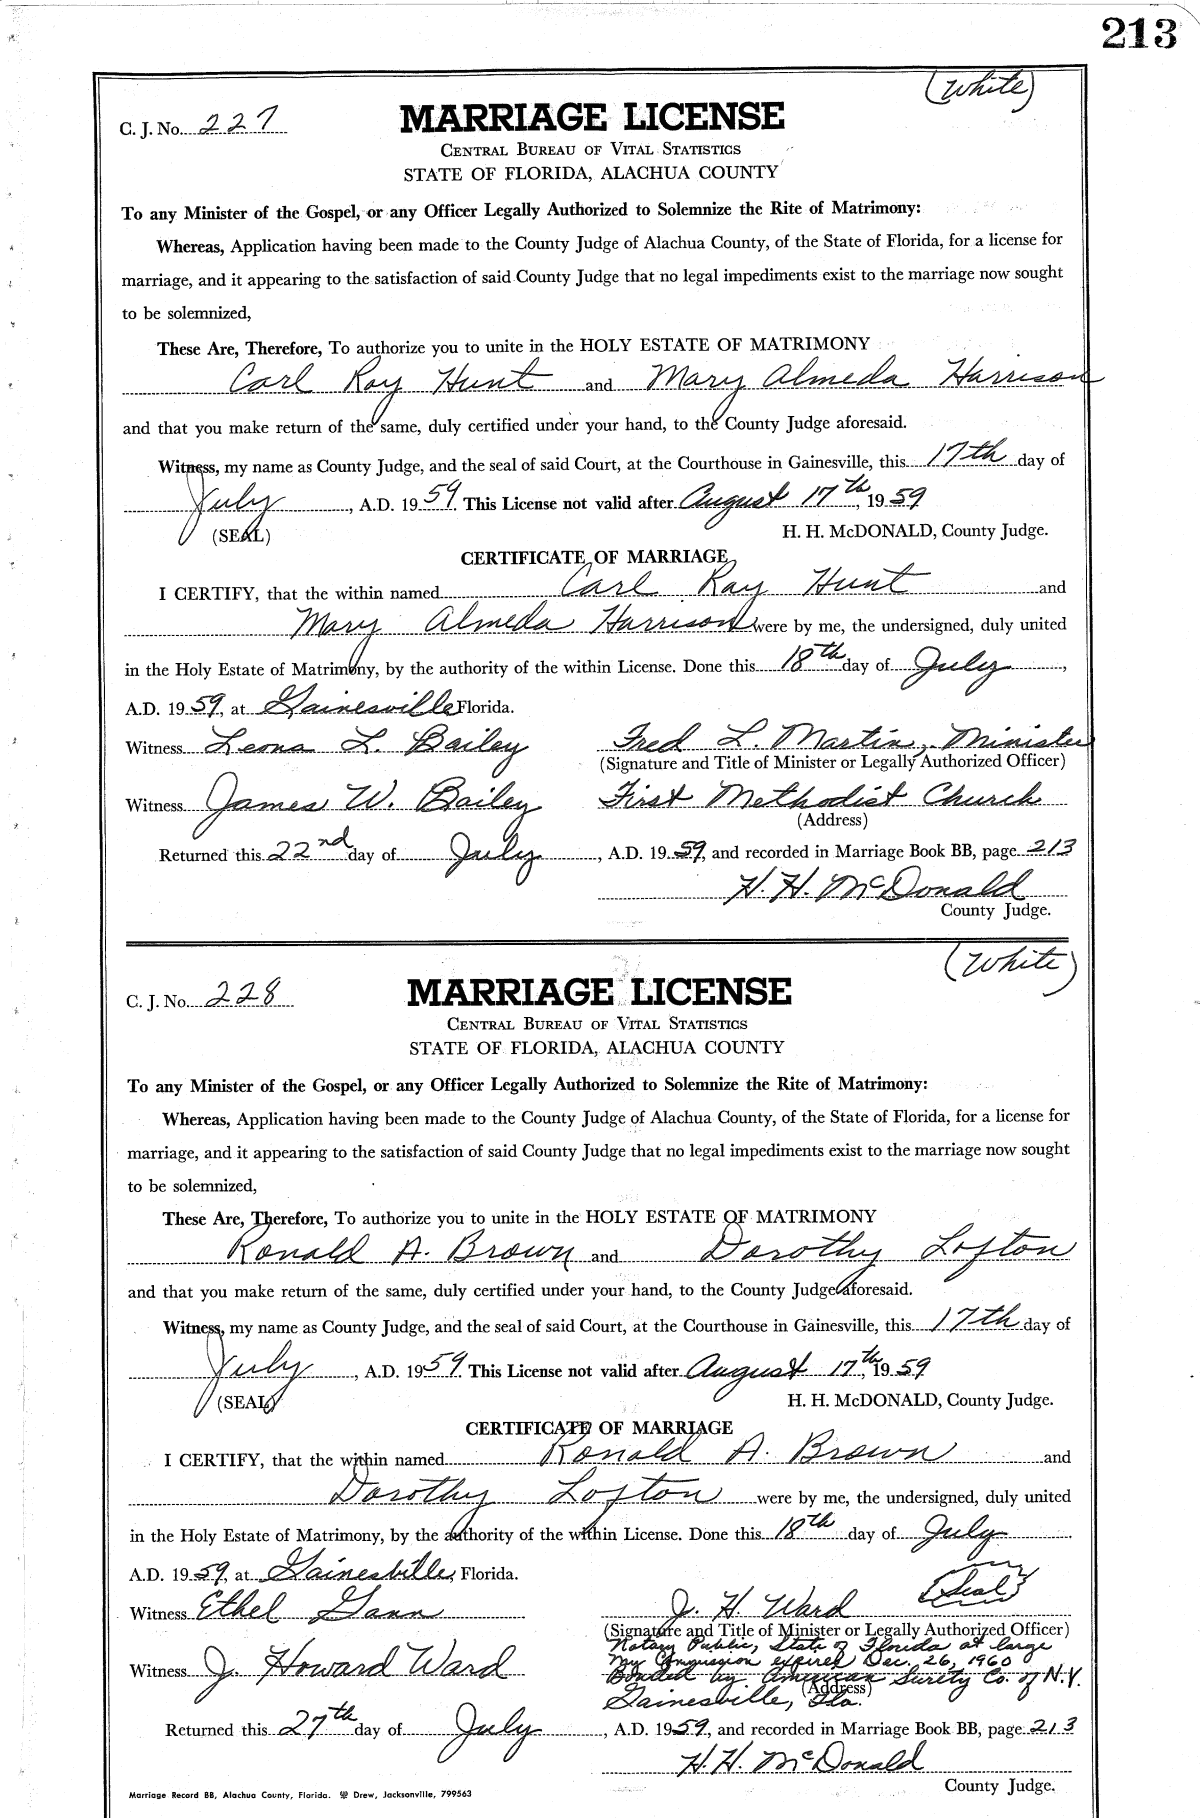 213
(White)
C. J. No. 227
MARRIAGE LICENSE
CENTRAL BUREAU OF VITAL STATISTICS
STATE OF FLORIDA, ALACHUA COUNTY
To any Minister of the Gospel, or any Officer Legally Authorized to Solemnize the Rite of Matrimony:
Whereas, Application having been made to the County Judge of Alachua County, of the State of Florida, for a license for
marriage, and it appearing to the satisfaction of said County Judge that no legal impediments exist to the marriage now sought
to be solemnized,
These Are, Therefore, To authorize you to unite in the HOLY ESTATE OF MATRIMONY
Carl Ray Hunt and Mary Almeda Harrison
and that you make return of the same, duly certified under your hand, to the County Judge aforesaid.
Witness, my name as County Judge, and the seal of said Court, at the Courthouse in Gainesville, this 17th day of
July, A.D. 1959. This License not valid after August 17th, 1959
(SEAL) H. H. McDONALD, County Judge.
CERTIFICATE OF MARRIAGE
I CERTIFY, that the within named Carl Ray Hunt and
Mary Almeda Harrison were by me, the undersigned, duly united
in the Holy Estate of Matrimony, by the authority of the within License. Done this 18th day of July,
A.D. 1959, at Gainesville Florida.
Witness Leona L. Bailey Fred L. Martin, Minister
(Signature and Title of Minister or Legally Authorized Officer)
Witness James W. Bailey First Methodist Church
(Address)
Returned this 22nd day of July, A.D. 1959, and recorded in Marriage Book BB, page 213
H. H. McDonald
County Judge.
(White)
C. J. No. 228
MARRIAGE LICENSE
CENTRAL BUREAU OF VITAL STATISTICS
STATE OF FLORIDA, ALACHUA COUNTY
To any Minister of the Gospel, or any Officer Legally Authorized to Solemnize the Rite of Matrimony:
Whereas, Application having been made to the County Judge of Alachua County, of the State of Florida, for a license for
marriage, and it appearing to the satisfaction of said County Judge that no legal impediments exist to the marriage now sought
to be solemnized,
These Are, Therefore, To authorize you to unite in the HOLY ESTATE OF MATRIMONY
Ronald A. Brown and Dorothy Lofton
and that you make return of the same, duly certified under your hand, to the County Judge aforesaid.
Witness, my name as County Judge, and the seal of said Court, at the Courthouse in Gainesville, this 17th day of
July, A.D. 1959. This License not valid after August 17th, 1959
(SEAL) H. H. McDONALD, County Judge.
CERTIFICATE OF MARRIAGE
I CERTIFY, that the within named Ronald A. Brown and
Dorothy Lofton were by me, the undersigned, duly united
in the Holy Estate of Matrimony, by the authority of the within License. Done this 18th day of July
A.D. 1959, at Gainesville, Florida.
Witness Ethel Gann J. H. Ward (Seal)
(Signature and Title of Minister or Legally Authorized Officer)
Notary Public, State of Florida at large
My Commission expires Dec. 26, 1960
Witness J. Howard Ward Bonded by American Surety Co. of N.Y.
(Address)
Gainesville, Fla.
Returned this 27th day of July, A.D. 1959, and recorded in Marriage Book BB, page 213
H. H. McDonald
County Judge.
Marriage Record BB, Alachua County, Florida. Drew, Jacksonville, 799563